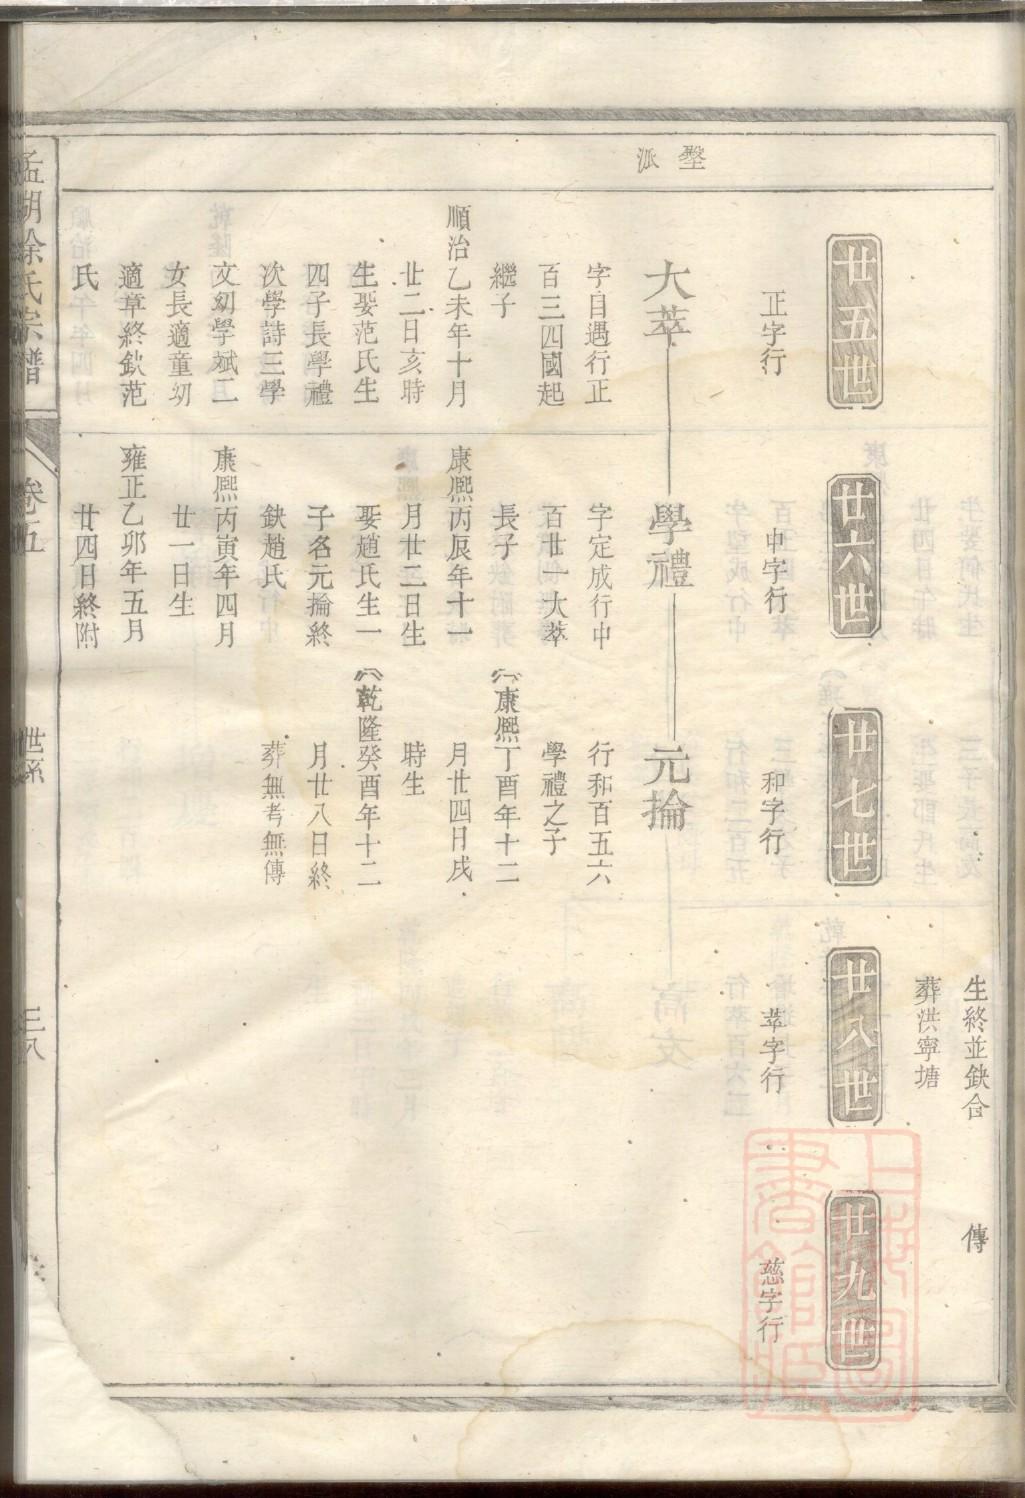 墅派
生終並鈌合
葬洪寧塘
傳
廿五世
廿六世
廿七世
廿八世
廿九世
正字行
中字行
和字行
萃字行
慈字行
大萃
字自遇行正
百三四國起
繼子
順治乙未年十月
廿二日亥時
生娶范氏生
四子長學禮
次學詩三學
文幼學斌二
女長適童幼
適章終鈌范
氏
學禮
字定成行中
百廿一大萃
長子
康熙丙辰年十一
月廿二日生
娶趙氏生一
子名元掄終
鈌趙氏
康熙丙寅年四月
廿一日生
雍正乙卯年五月
廿四日終附
元掄
行和百五六
學禮之子
康熙丁酉年十二
月廿四日戌
時生
乾隆癸酉年十二
月廿八日終
葬無考無傳
孟湖徐氏宗譜
卷五
世系
三八
上海圖書館藏